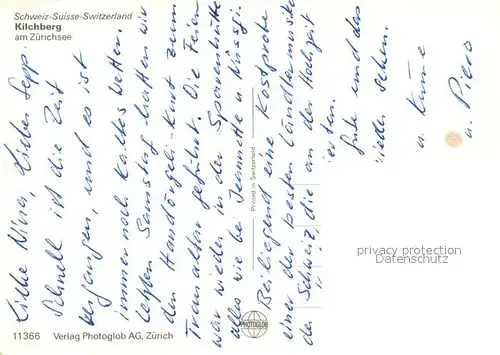 Schweiz-Suisse-Switzerland
Kilchberg
am Zürichsee
Liebe Nina, Lieber Sepp.
Schnell ist die Zeit
vergangen, und es ist
immer noch kaltes Wetter.
Letzten Samstag hatten wir
den Handörgeli-Kurt zum
Traualtar geführt. Die Feier
war wieder in der
alles wie bei Jeannette u.
Beiliegend eine Kostprobe
einer der besten Ländlermusik
der Schweiz, die an der Hochzeit
Gute und das
wieder sehen.
u.
u. Piero
Printed in Switzerland
privacy protection
Datenschutz
PHOTOGLOB
11366 Verlag Photoglob AG, Zürich